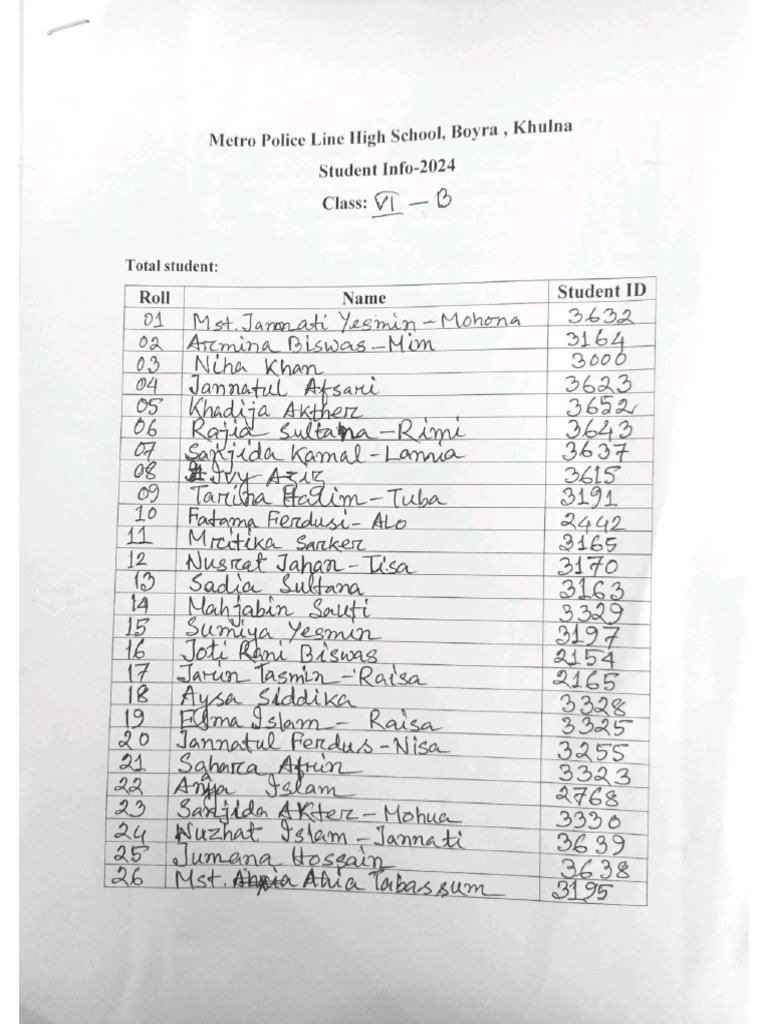 Metro Police Line High School, Boyra , Khulna
Student Info-2024
Class: VI - B
Total student:
Roll Name Student ID
01 Mst. Jannati Yesmin - Mohona 3632
02 Armina Biswas - Mim 3164
03 Niha Khan 3000
04 Jannatul Afsari 3623
05 Khadija Akther 3652
06 Rajia Sultana - Rimi 3643
07 Sanjida Kamal - Lamia 3637
08 Ivy Aziz 3615
09 Tariha Halim - Tuba 3191
10 Fatama Ferdusi - Alo 2442
11 Mritika Sarker 3165
12 Nusrat Jahan - Tisa 3170
13 Sadia Sultana 3163
14 Mahjabin Sauti 3329
15 Sumiya Yesmin 3197
16 Joti Rani Biswas 2154
17 Jarin Tasmin - Raisa 2165
18 Aysa Siddika 3328
19 Islam - Raisa 3325
20 Jannatul Ferdus - Nisa 3255
21 Sahara Afrin 3323
22 Islam 2768
23 Sanjida Akter - Mohua 3330
24 Nuzhat Islam - Jannati 3639
25 Jumana Hossain 3638
26 Mst. Tabassum 3195